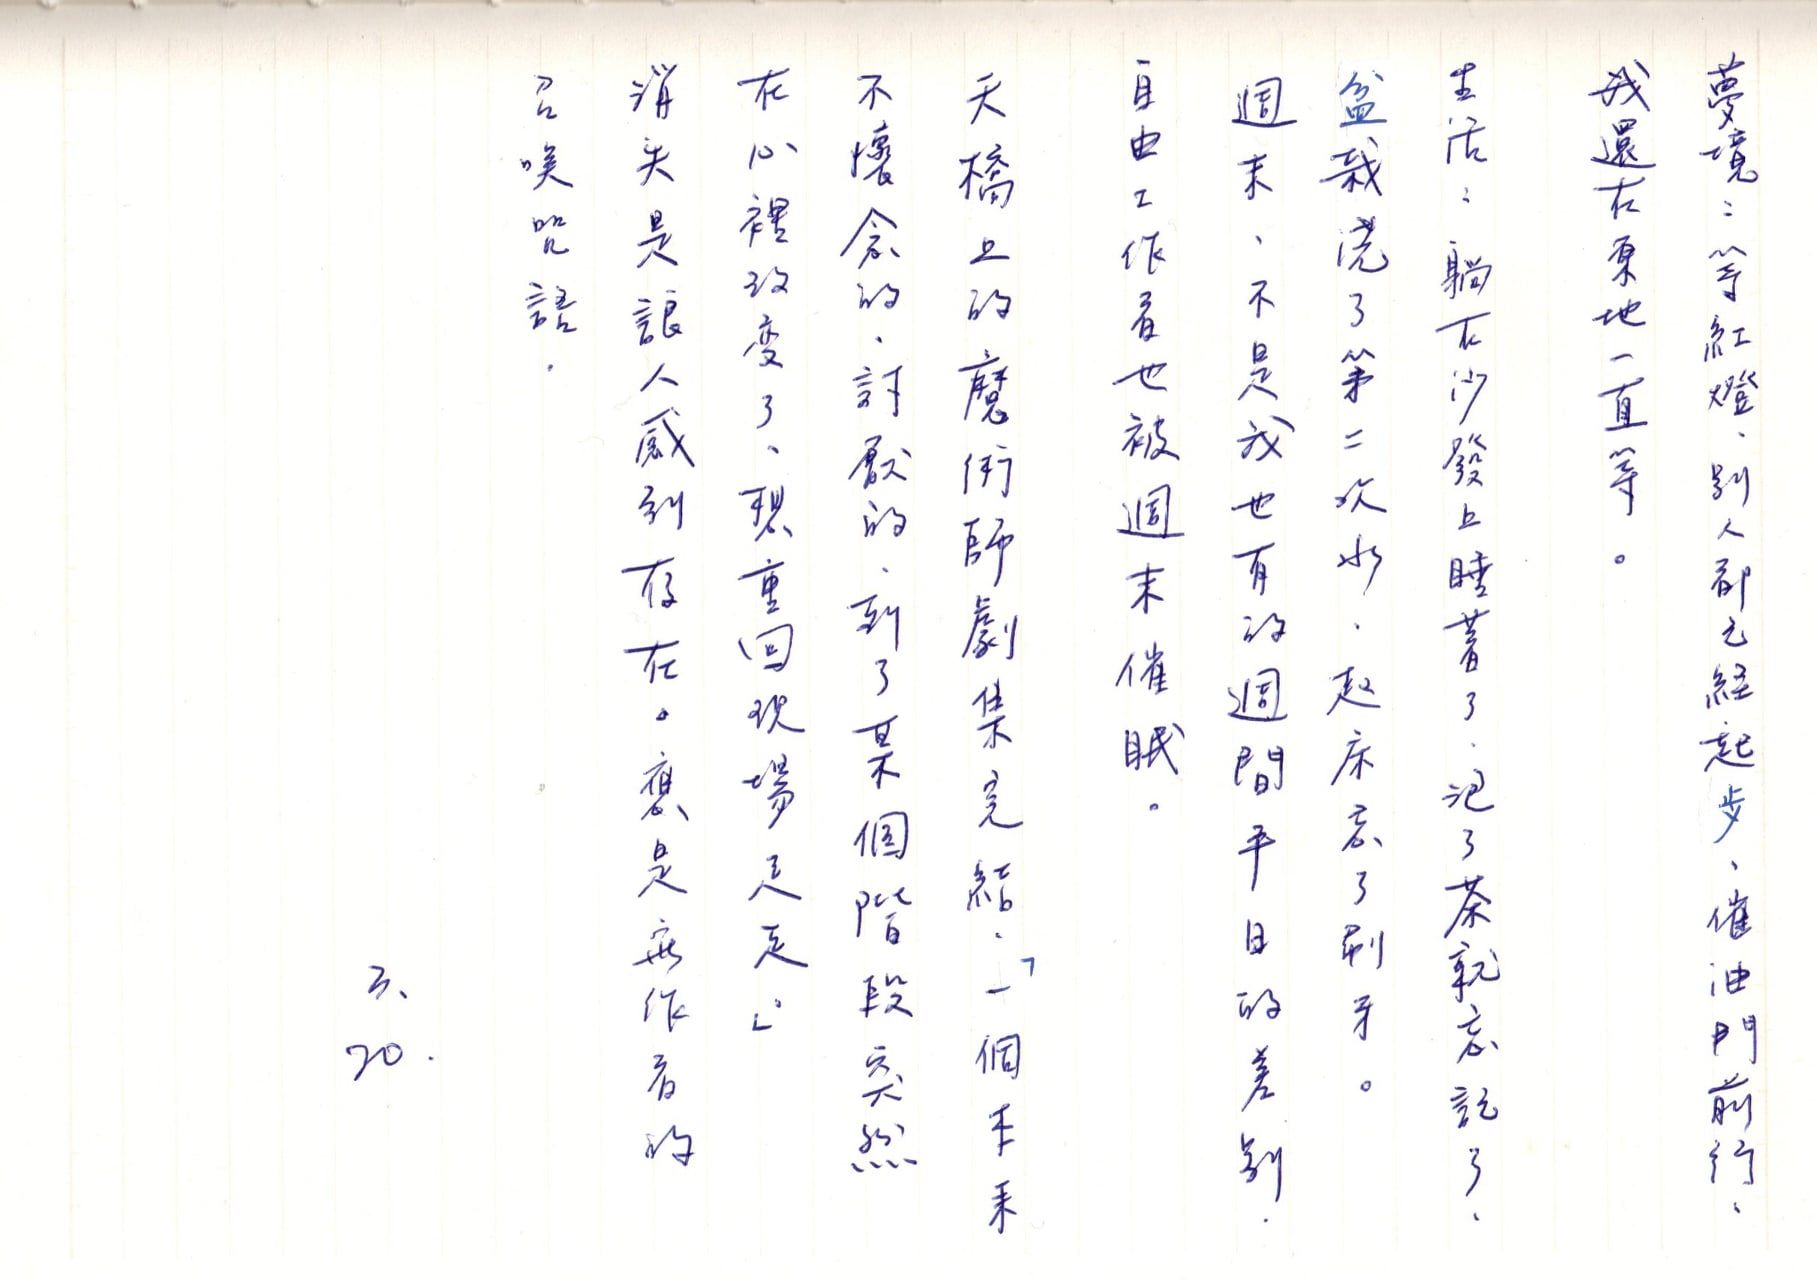 夢境：等紅燈、別人都已経起步、催油門前行、
我還在原地一直等。
生活：躺在沙發上睡著了、泡了茶就忘記了、
盆栽澆了第二次水、起床忘了刷牙。
週末、不是我也有的週間平日的差別、
自由工作者也被週末催眠。
天橋上的魔術師劇集完結、「一個本來
不懷念的、討厭的、到了某個階段突然
在心裡改变了、想重回現場走走」
消失是讓人感到存在。應是無作者的
召喚咒語。
3、
20.